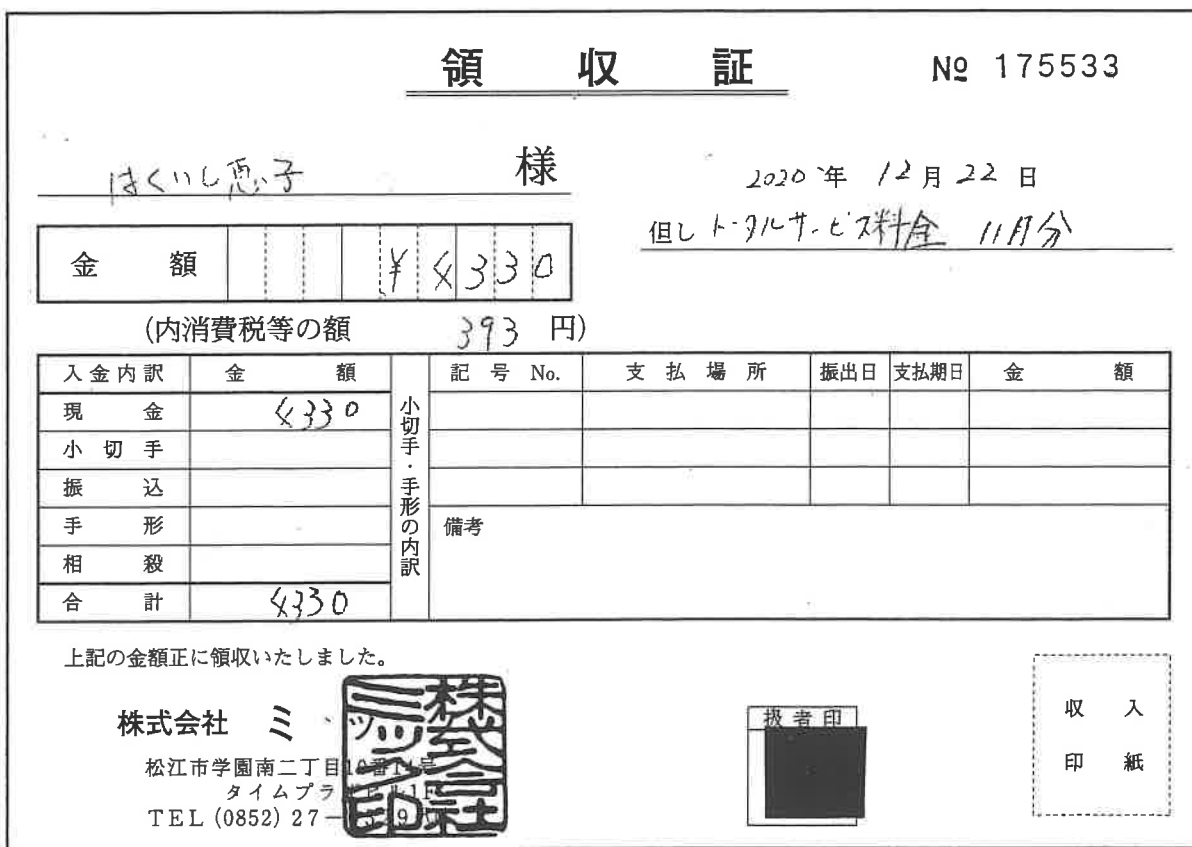 領収証
№ 175533
はくいし恵子 様
2020年 12月 22日
但し トータルサービス料金 11月分
金額 ¥4330
(内消費税等の額 393 円)
入金内訳 金額
現金 4330
小切手
振込
手形
相殺
合計 4330
小切手・手形の内訳
記号 No. 支払場所 振出日 支払期日 金額
備考
上記の金額正に領収いたしました。
株式会社 ミ
松江市学園南二丁目
タイムプラ
TEL (0852) 27-
扱者印
収入
印紙